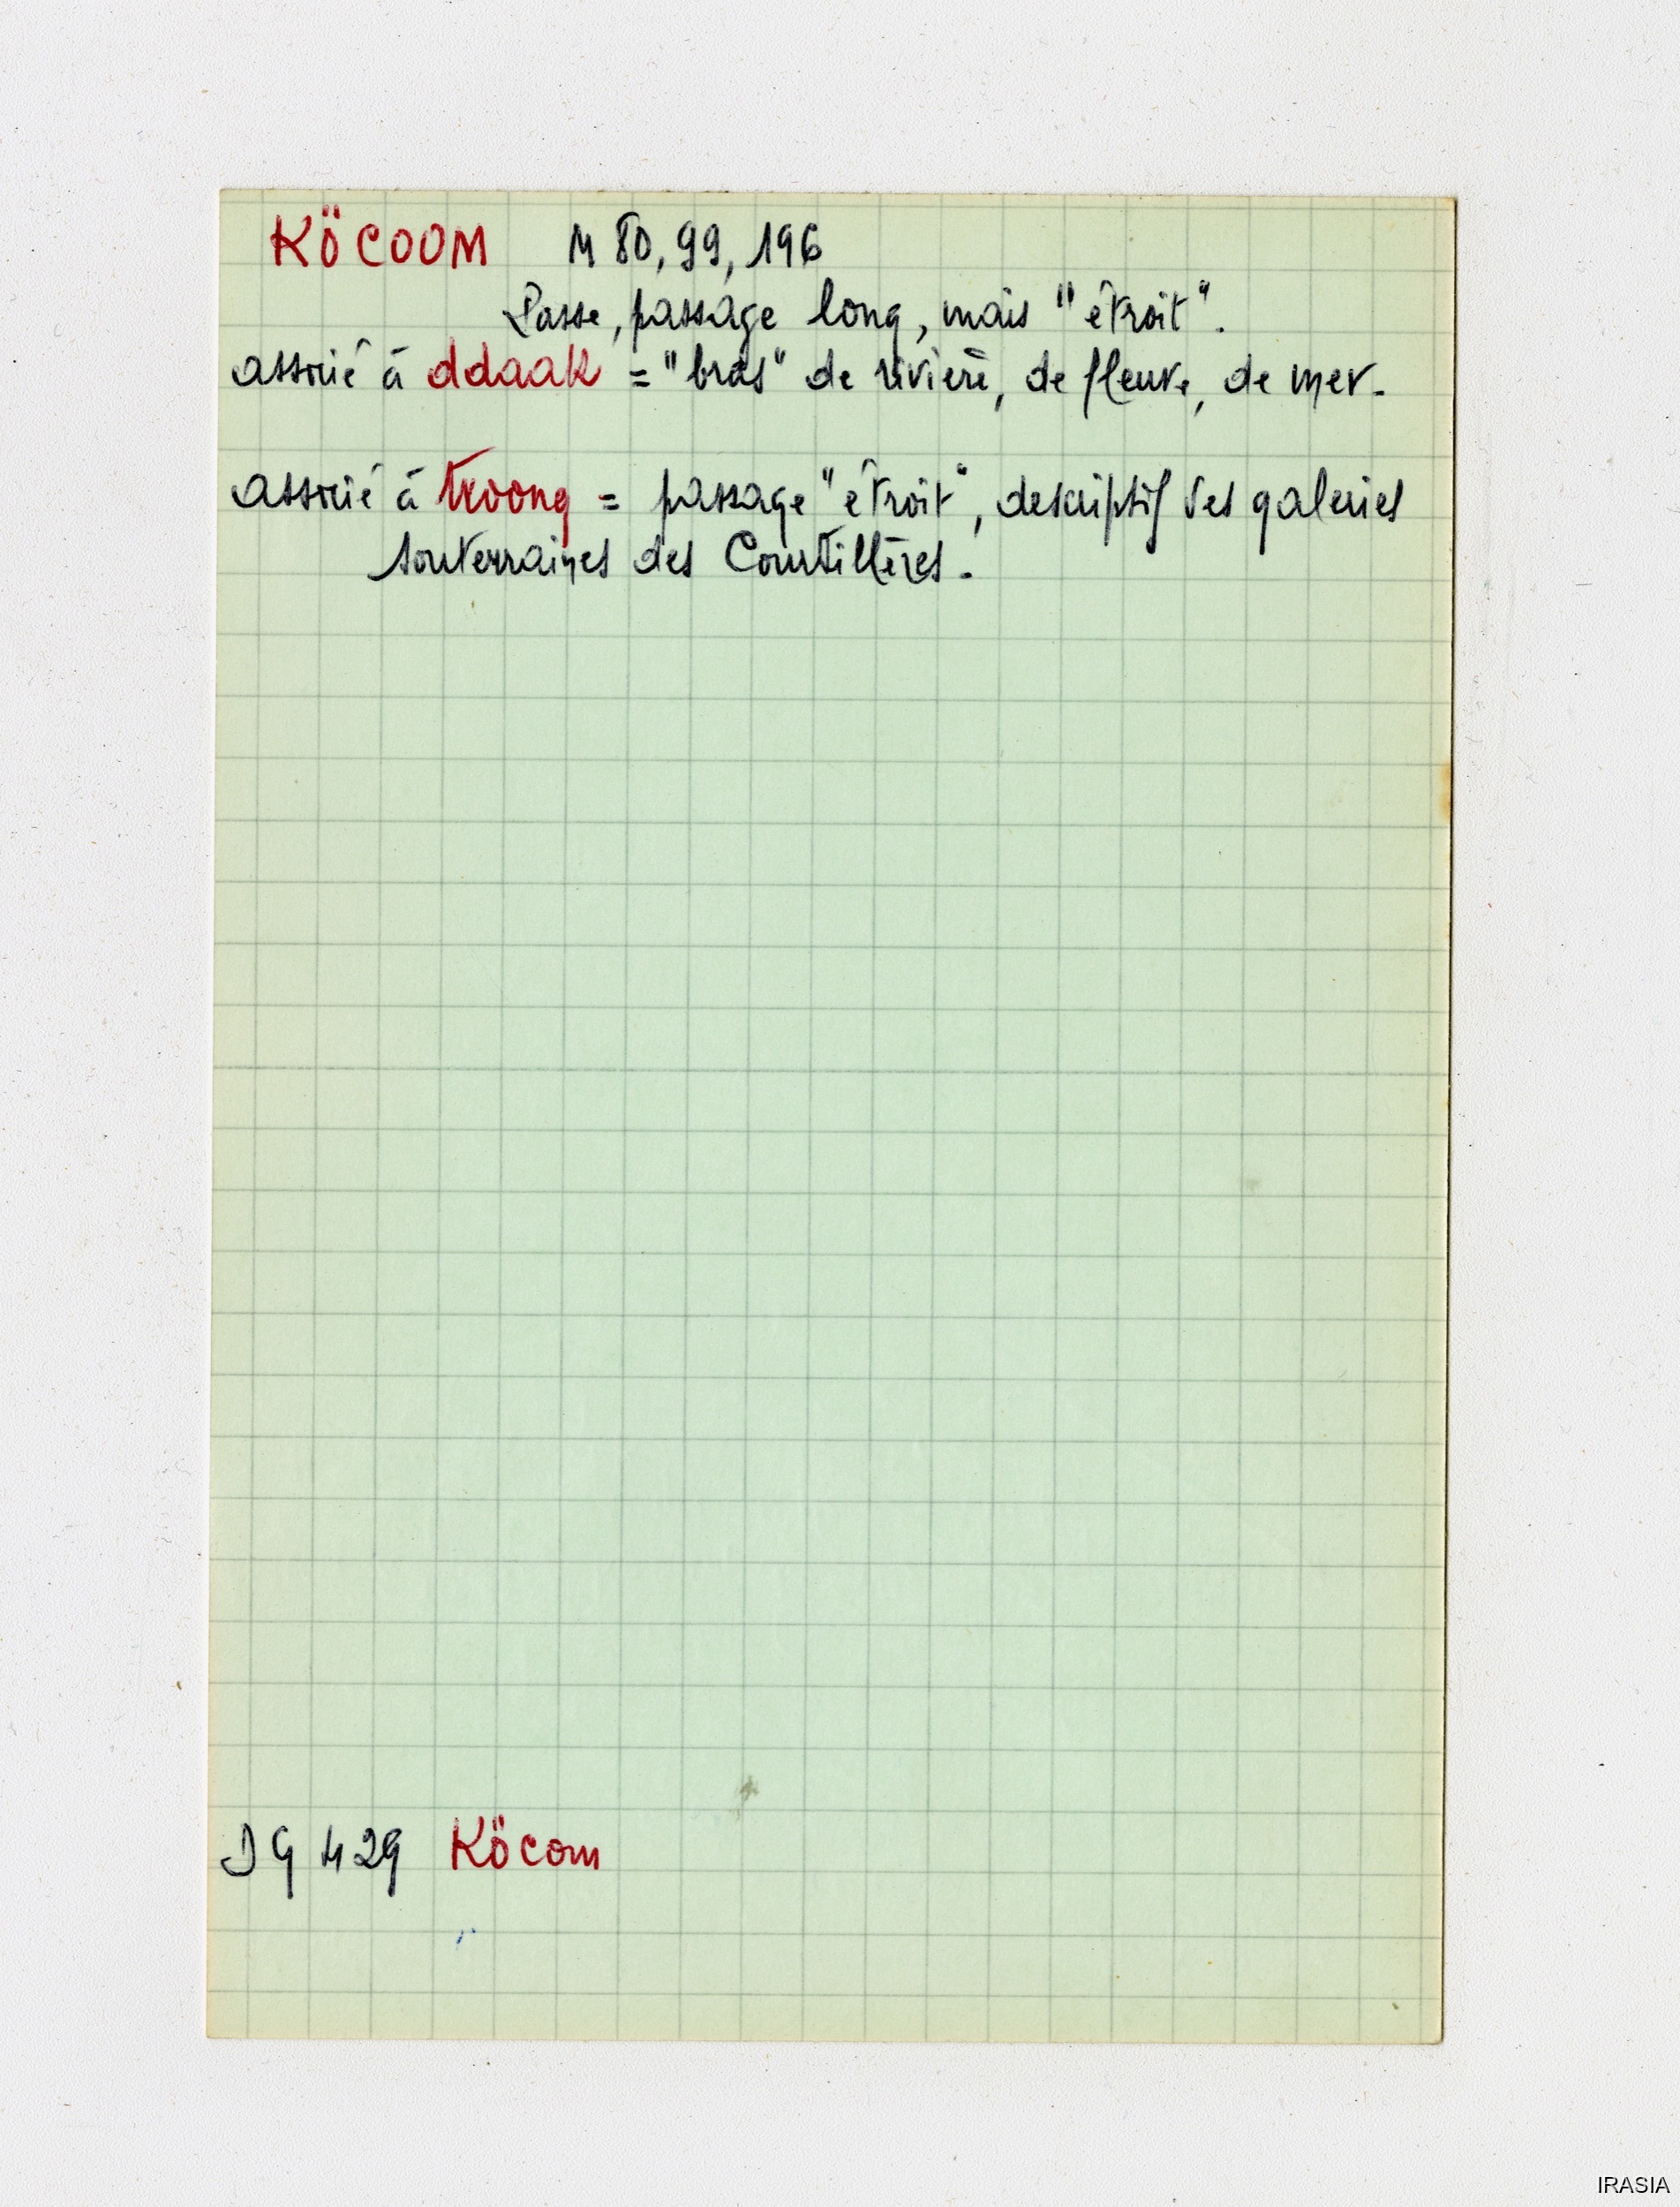 KÖCOOM M 80, 99, 196
Passe, passage long, mais "étroit".
associé à ddaak = "bras" de rivière, de fleuve, de mer.
associé à troong = passage "étroit", descriptif des galeries
souterraines des Courtilières.
DG 429 Köcom
IRASIA